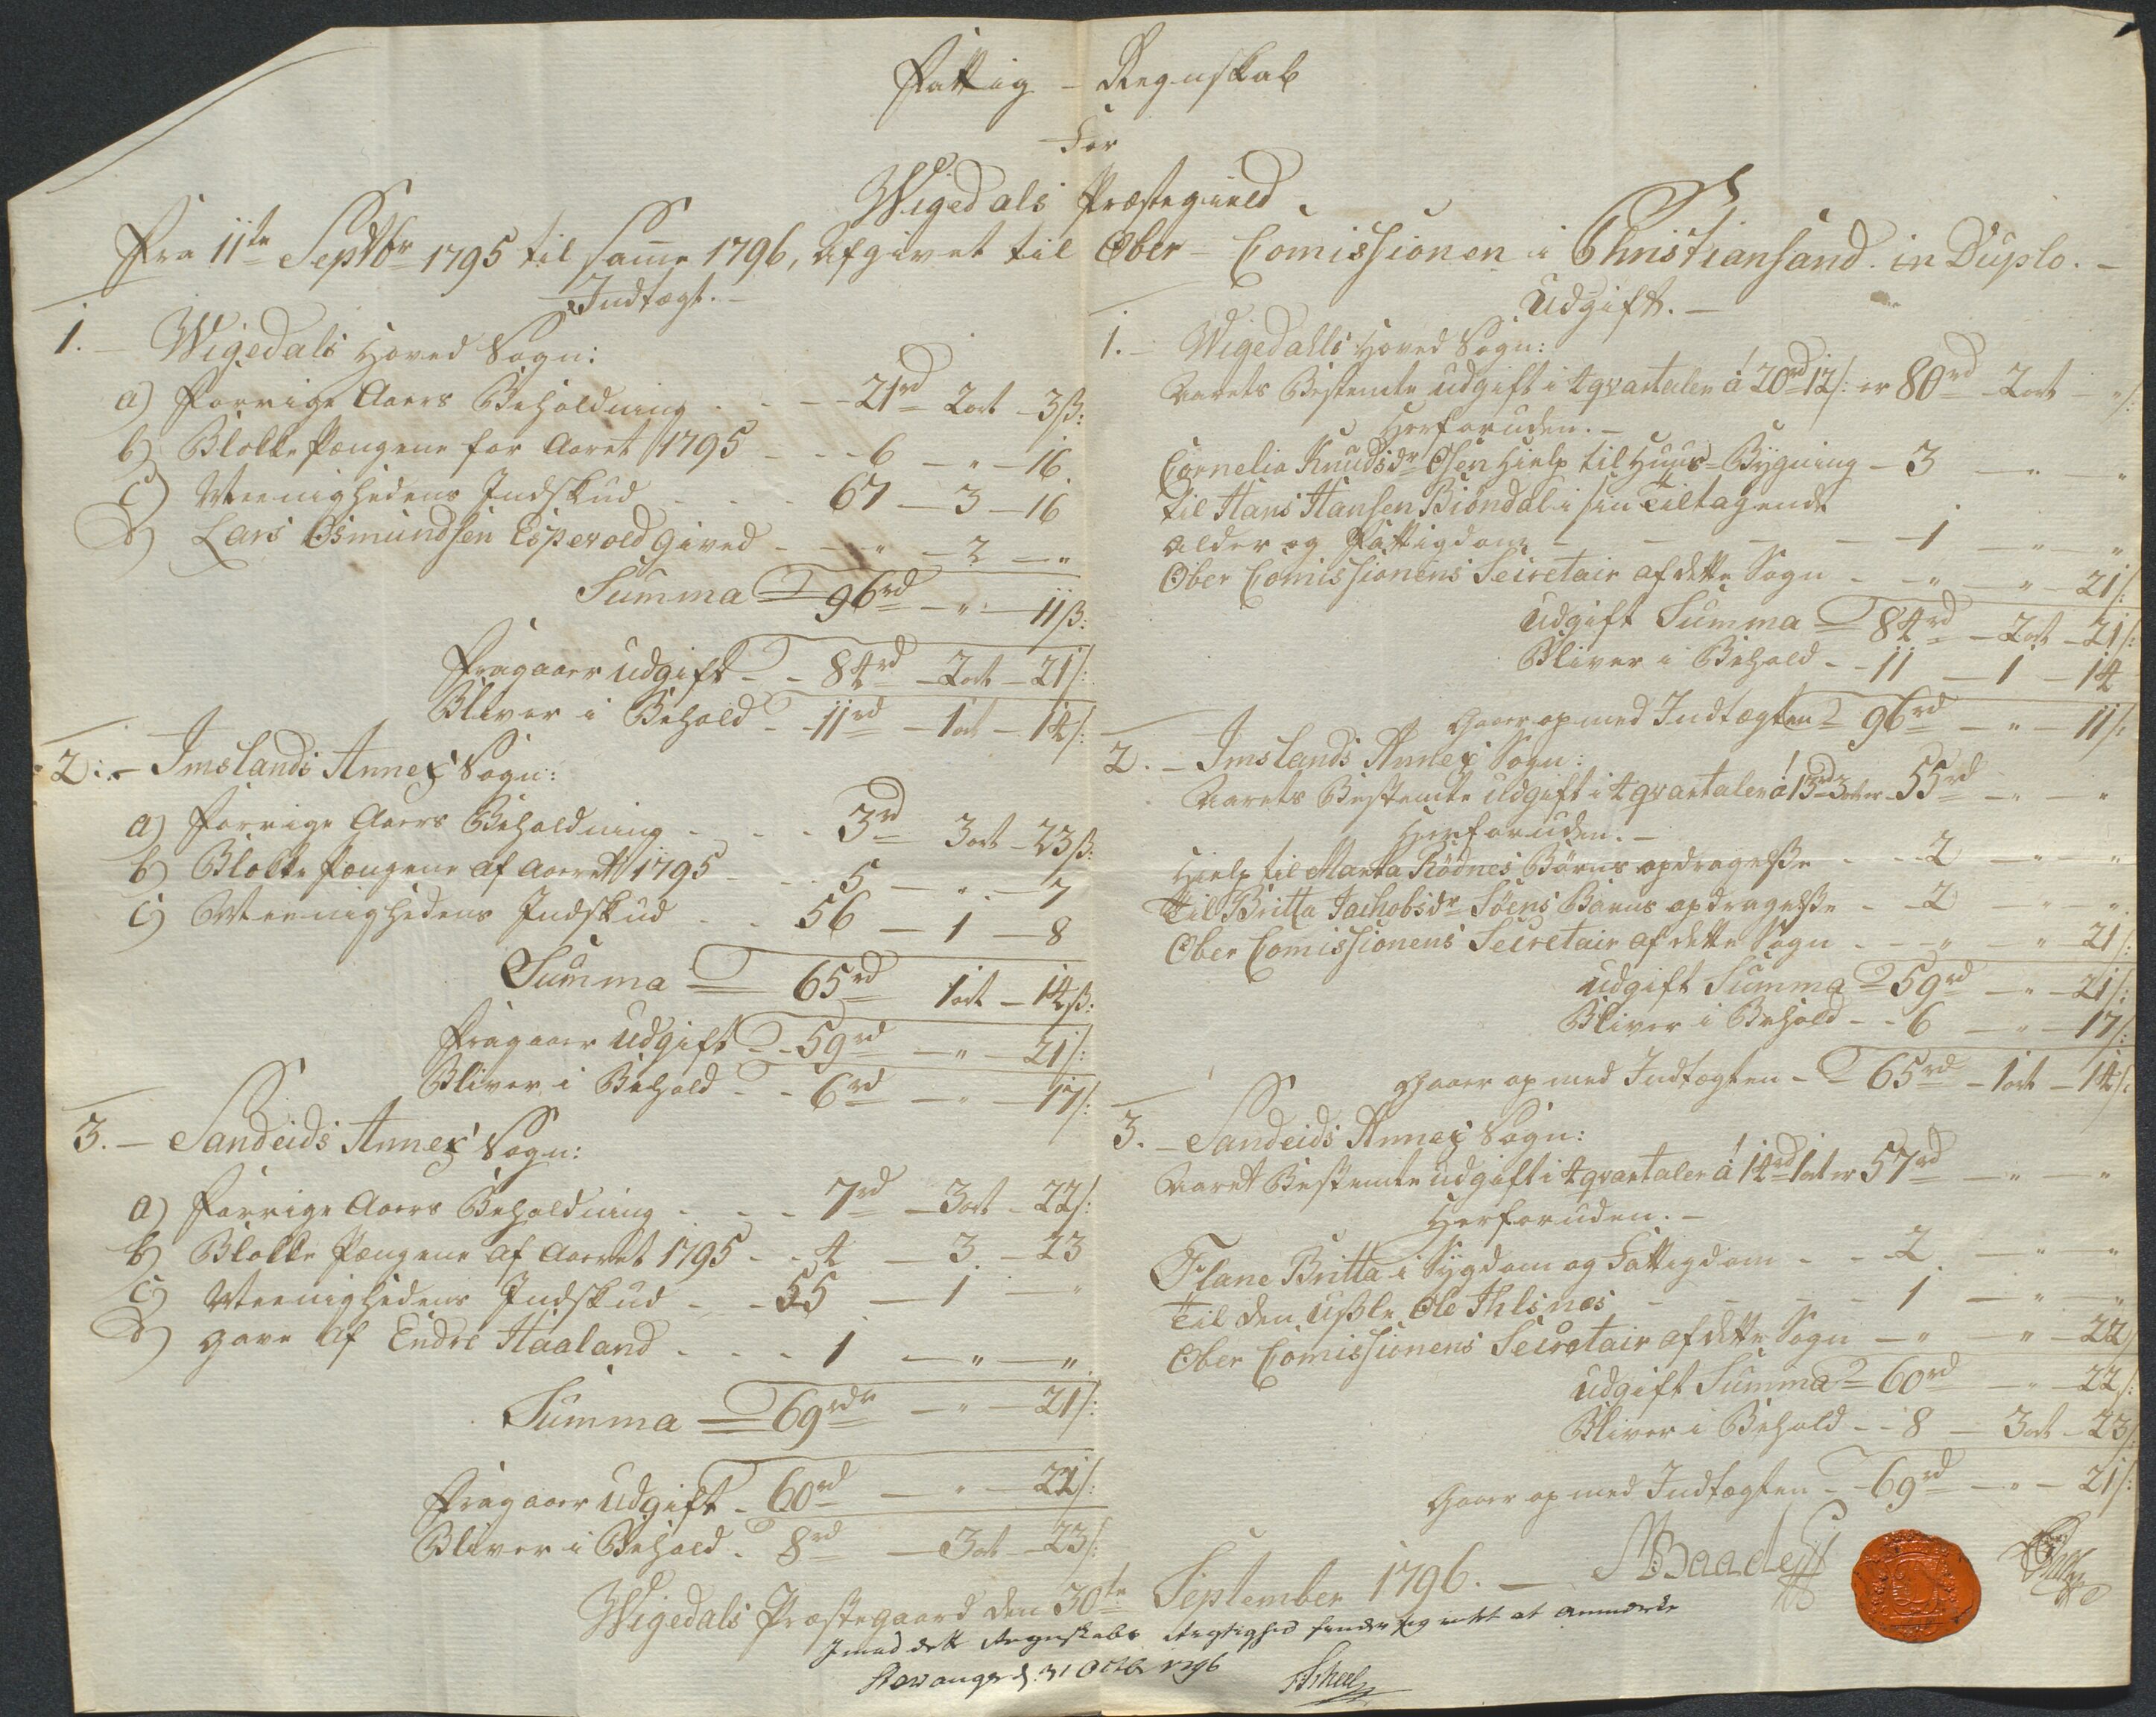 Fattig - Regnskab
for
Wigedals Præstegield
Fra 11te Septbr 1795 til same 1796, afgivet til Ober - Comissionen i Christiansand in Duplo. -
Indtægt. -
1. - Wigedals Hoved Sogn:
a) Forrige Aars Beholdning - - - 21rd 2ort - 3ß:
b) Blokke Pengene for Aaret 1795 - - - 6 - " - 16
c) Meenighedens Indskud - - - 67 - 3 - 16
d) Lars Osmundsen Espevold gived - - - " - 2 - "
Summa = 96rd - " - 11ß:
Fragaaer Udgift - - 84rd - 2ort - 21ß:
Bliver i Behold - - 11rd - 1ort - 14ß:
2. - Imslands Annex Sogn:
a) Forrige Aars Beholdning - - - 3rd 3ort - 23ß:
b) Blokke Pengene af Aaret 1795 - - - 5 - " - 7
c) Meenighedens Indskud - - 56 - 1 - 8
Summa = 65rd 1ort - 14ß:
Fragaaer Udgift - - 59rd - " - 21ß:
Bliver i Behold - - 6rd - " - 17ß:
3. - Sandeids Annex Sogn:
a) Forrige Aars Beholdning - - - 7rd - 3ort - 22ß:
b) Blokke Pengene af Aaret 1795 - - 4 - 3 - 23
c) Meenighedens Indskud - - 55 - 1 - "
d) Gave af Endre Haaland - - - 1 - " - "
Summa = 69rdr - " - 21ß:
Fragaaer Udgift - 60rd - " - 22ß:
Bliver i Behold - 8rd - 3ort - 23ß:
Udgift. -
1. - Wigedalls Hoved Sogn:
Aarets Bestemte Udgift i 4 qvartaler á 20rd 12ß: er 80rd - 2ort - "ß:
Herforuden. -
Cornelia Knudsdr Osen Hielp til Huus-Bygning - 3 - " "
til Hans Hansen Biöndal i sin tiltagende
Alder og Fattigdom - - - - 1 - " "
Ober Comissionens Secretair af dette Sogn - - " - " - 21ß:
Udgift Summa = 84rd - 2ort - 21ß:
Bliver i Behold - - 11 - 1 - 14
Gaaer op med Indtægten = 96rd - " - 11ß:
2. - Imslands Annex Sogn:
Aarets Bestemte Udgift i 4 qvartaler á 13rd 3ort er - 55rd - " - "
Herforuden. -
Hielp til Marta Rödnes Börns opdragelsse - - 2 - " - "
Til Britta Jachobsdr Söens Barns opdragelsse - - 2 - " - "
Ober Comissionens Secretair af dette Sogn - - - " " 21ß:
Udgift Summa = 59rd - " - 21ß:
Bliver i Behold - - 6 - " - 17ß:
Gaaer op med Indtægten - = 65rd - 1ort - 14ß:
3. - Sandeids Annex Sogn:
Aaret Bestemte Udgift i 4 qvartaler á 14rd 1ort er 57rd - " - "
Herforuden. -
Flane Britta i Sygdom og Fattigdom - - 2 - " - "
Til den Usle Ole Ihlsnes - - - 1 - " - "
Ober Comissionens Secretair af dette Sogn - " - " - 22ß
Udgift Summa = 60rd - " - 22ß:
Bliver i Behold - - 8 - 3ort - 23ß:
Gaaer op med Indtægten - - 69rd - " - 21ß:
Wigedals Præstegaard den 30te September 1796. - Baade
Imod dette Regnskabs Rigtighed finder jeg intet at anmærke
Stavanger d. 31 Octbr 1796 Scheel